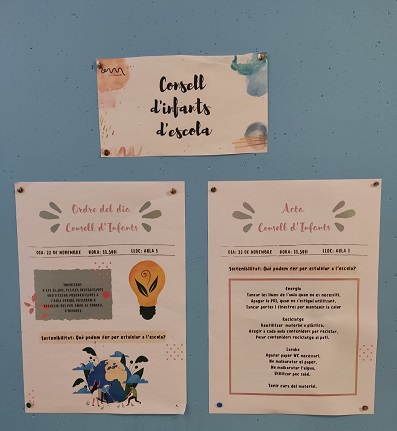 Consell
d'infants
d'escola
Ordre del dia
Consell d'Infants
DIA: 22 DE NOVEMBRE HORA: 11.50H LLOC: AULA 3
Sostenibilitat: Què podem fer per estalviar a l'escola?
Acta
Consell d'Infants
DIA: 22 DE NOVEMBRE HORA: 11.50H LLOC: AULA 3
Sostenibilitat: Què podem fer per estalviar a l'escola?
Energia
Tancar les llums de l'aula quan no es necessiti.
Apagar la PDI, quan no s'estigui utilitzant.
Tancar portes i finestres per mantenir la calor
Reciclatge
Reutilitzar material o plàstica.
Afegir a cada aula contenidors per reciclar.
Posar contenidors reciclatge al pati.
Lavabo
Agafar paper WC necessari.
No malbaratar el paper.
No malbaratar l'aigua.
Utilitzar poc sabó.
Tenir cura del material.